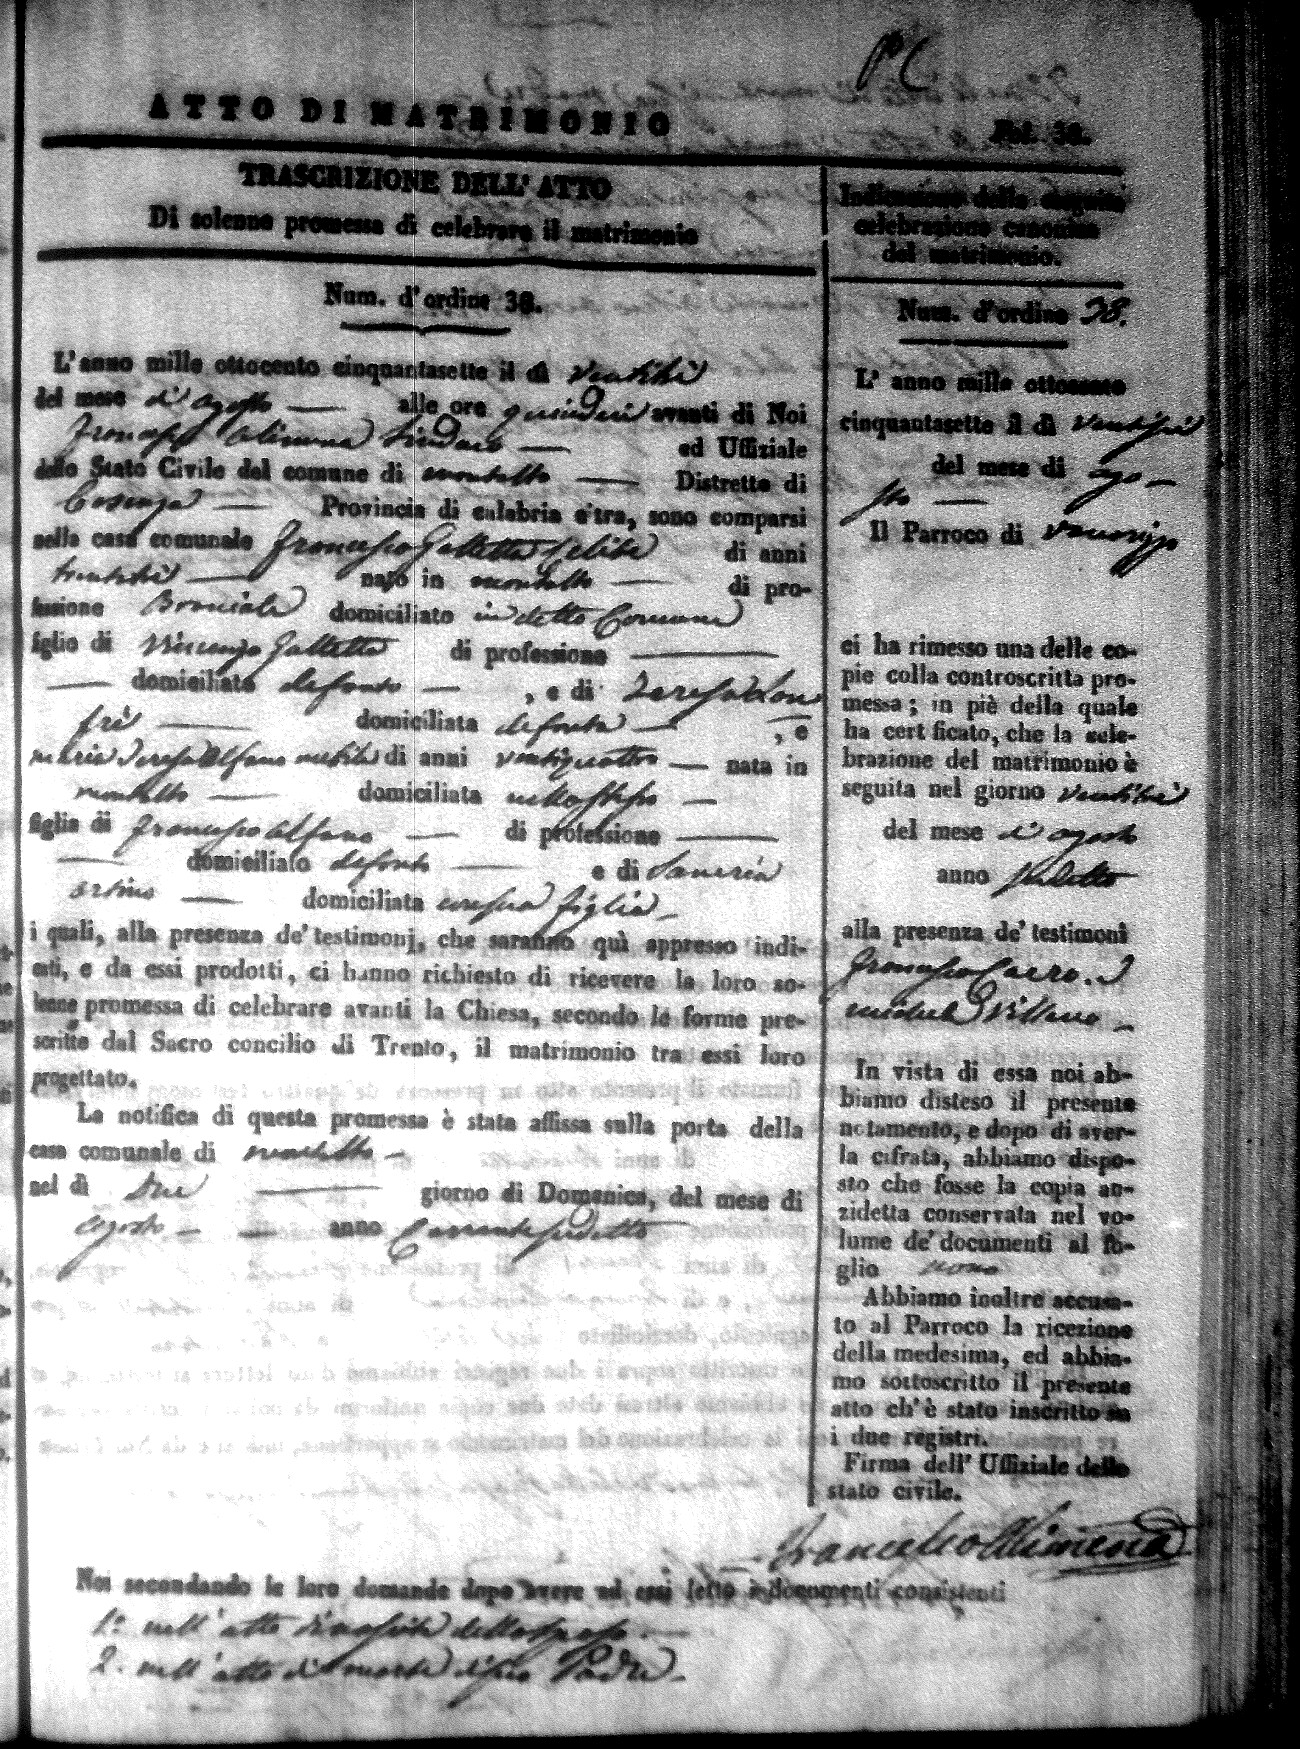 ATTO DI MATRIMONIO
Fol. 38.
TRASCRIZIONE DELL' ATTO
Di solenne promessa di celebrare il matrimonio
Num. d'ordine 38.
L'anno mille ottocento cinquantasette il dì
del mese di agosto — alle ore quindici avanti di Noi
Francesco Alimena Sindaco — ed Uffiziale
dello Stato Civile del comune di Montalto — Distretto di
Cosenza — Provincia di calabria citra, sono comparsi
nella casa comunale Francesco Galletta di anni
— nato in Montalto — di pro-
fessione domiciliato in detto Comune
figlio di Vincenzo Galletta di professione —
— domiciliato defonto — , e di Teresa
— domiciliata defonta — , e
Maria Teresa Alfano nubile di anni ventiquattro — nata in
Montalto — domiciliata nello stesso —
figlia di Francesco Alfano — di professione —
— domiciliato defonto — e di Saveria
— domiciliata figlia —
i quali, alla presenza de' testimonj, che saranno quì appresso indi-
cati, e da essi prodotti, ci hanno richiesto di ricevere la loro so-
lenne promessa di celebrare avanti la Chiesa, secondo le forme pre-
scritte dal Sacro concilio di Trento, il matrimonio tra essi loro
progettato.
La notifica di questa promessa è stata affissa sulla porta della
casa comunale di Montalto —
nel dì due — giorno di Domenica, del mese di
agosto — — anno Corrente sudetto
Indicazione della seguita
celebrazione canonica
del matrimonio.
Num. d'ordine 38.
L' anno mille ottocento
cinquantasette il dì
del mese di ago-
sto —
Il Parroco di
ci ha rimesso una delle co-
pie colla controscritta pro-
messa; in piè della quale
ha cert ficato, che la cele-
brazione del matrimonio è
seguita nel giorno
del mese di agosto
anno sudetto
alla presenza de' testimoni
Francesco
Villano —
In vista di essa noi ab-
biamo disteso il presente
notamento, e dopo di aver-
la cifrata, abbiamo dispo-
sto che fosse la copia an-
zidetta conservata nel vo-
lume de' documenti al fo-
glio
Abbiamo inoltre accusa-
to al Parroco la ricezione
della medesima, ed abbia-
mo sottoscritto il presente
atto ch' è stato inscritto su
i due registri.
Firma dell' Uffiziale dello
stato civile.
Francesco Alimena
Noi secondando le loro domande dopo avere ad essi letto i documenti consistenti
1.° nell' atto di nascita dello sposo —
2. nell' atto di morte di suo Padre —